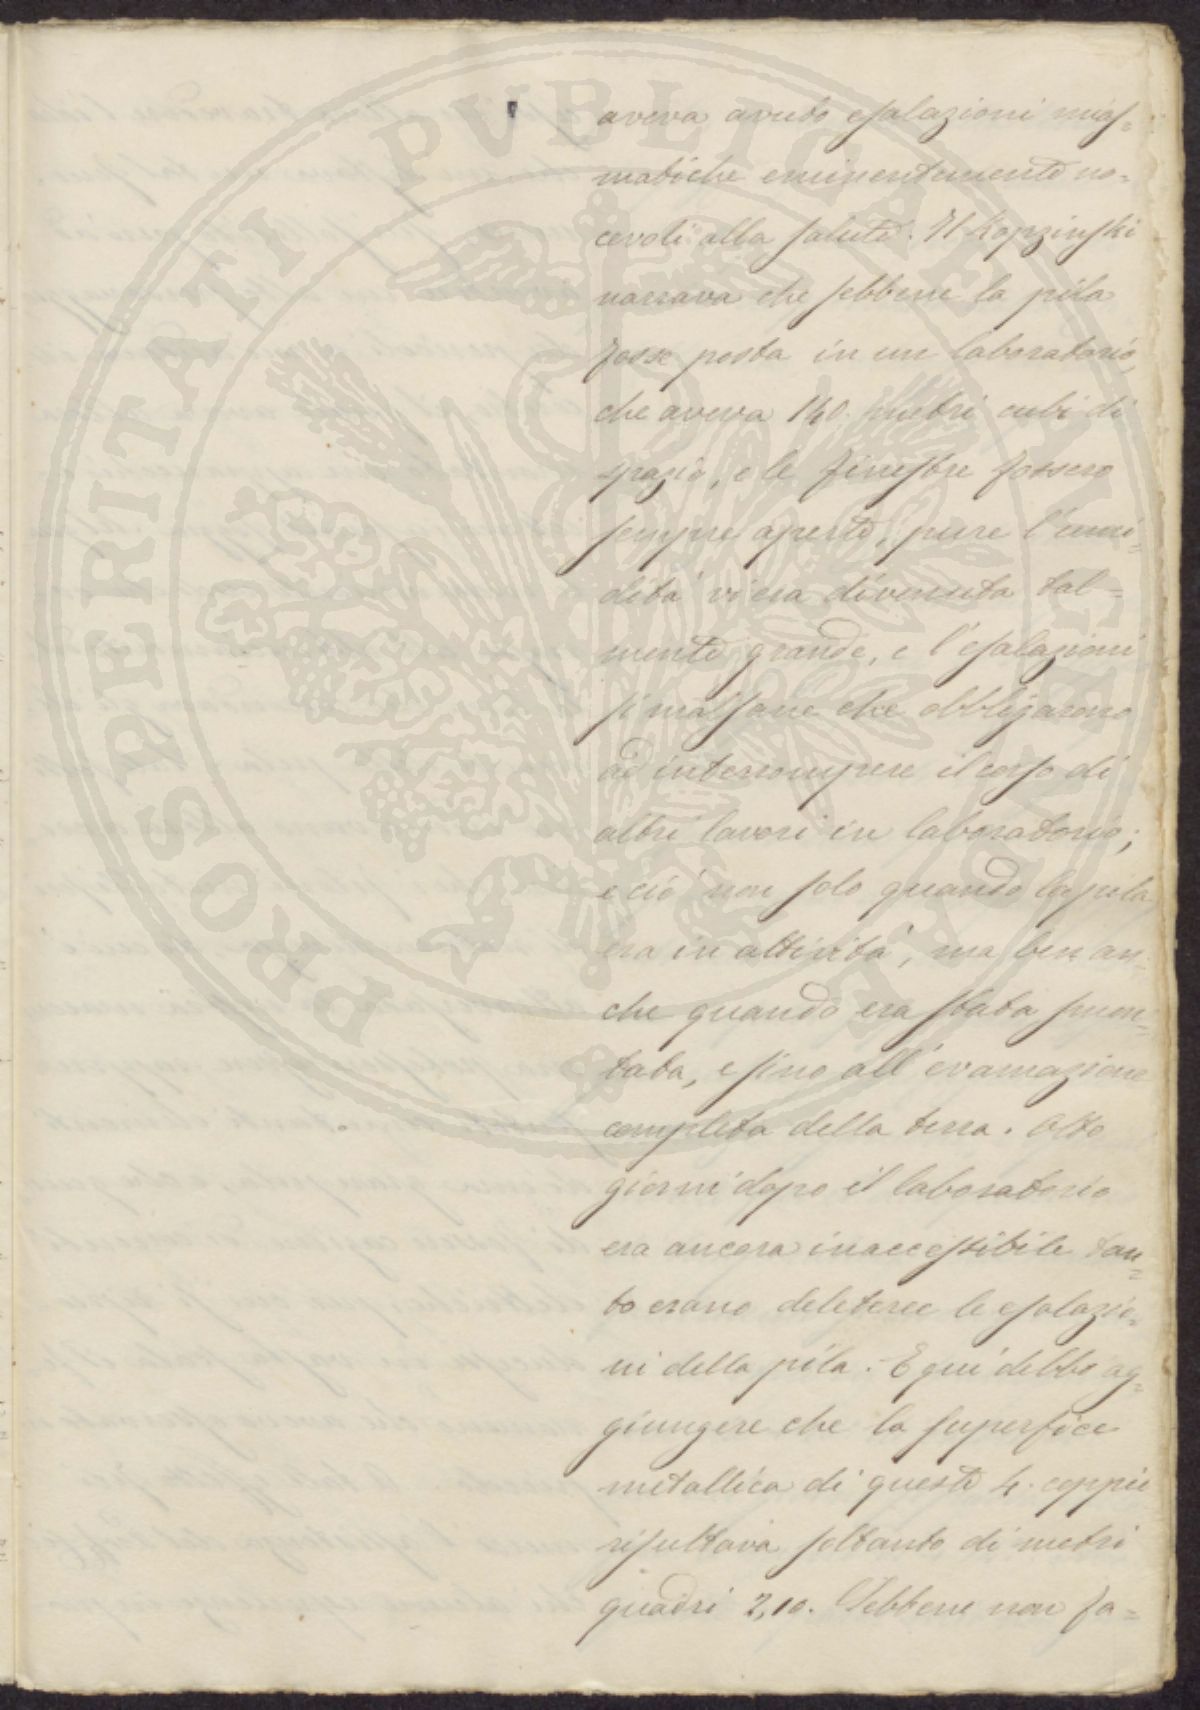 aveva avuto esalazioni mias=
matiche eminentemente no=
cevoli alla salute. Il Kopzinski
narrava che sebbene la pila
fosse posta in un laboratorio
che aveva 140. metri cubi di
spazio, e le finestre fossero
sempre aperte, pure l'umi=
dità vi era divenuta tal=
mente grande, e l'esalazioni
sì malsane che obbligarono
ad interrompere il corso di
altri lavori in laboratorio;
e ciò non solo quando la pila
era in attività, ma ben an=
che quando era stata smon=
tata, e sino all'evamazione
completa della terra. Otto
giorni dopo il laboratorio
era ancora inaccessibile tan=
to erano deleteree le esalazio=
ni della pila. E qui debbo ag=
giungere che la superfice
metallica di queste 4. coppie
risultava soltanto di metri
quadri 2,10. Sebbene non fa=
PROSPERITATI PVBLICAE AVGENDAE